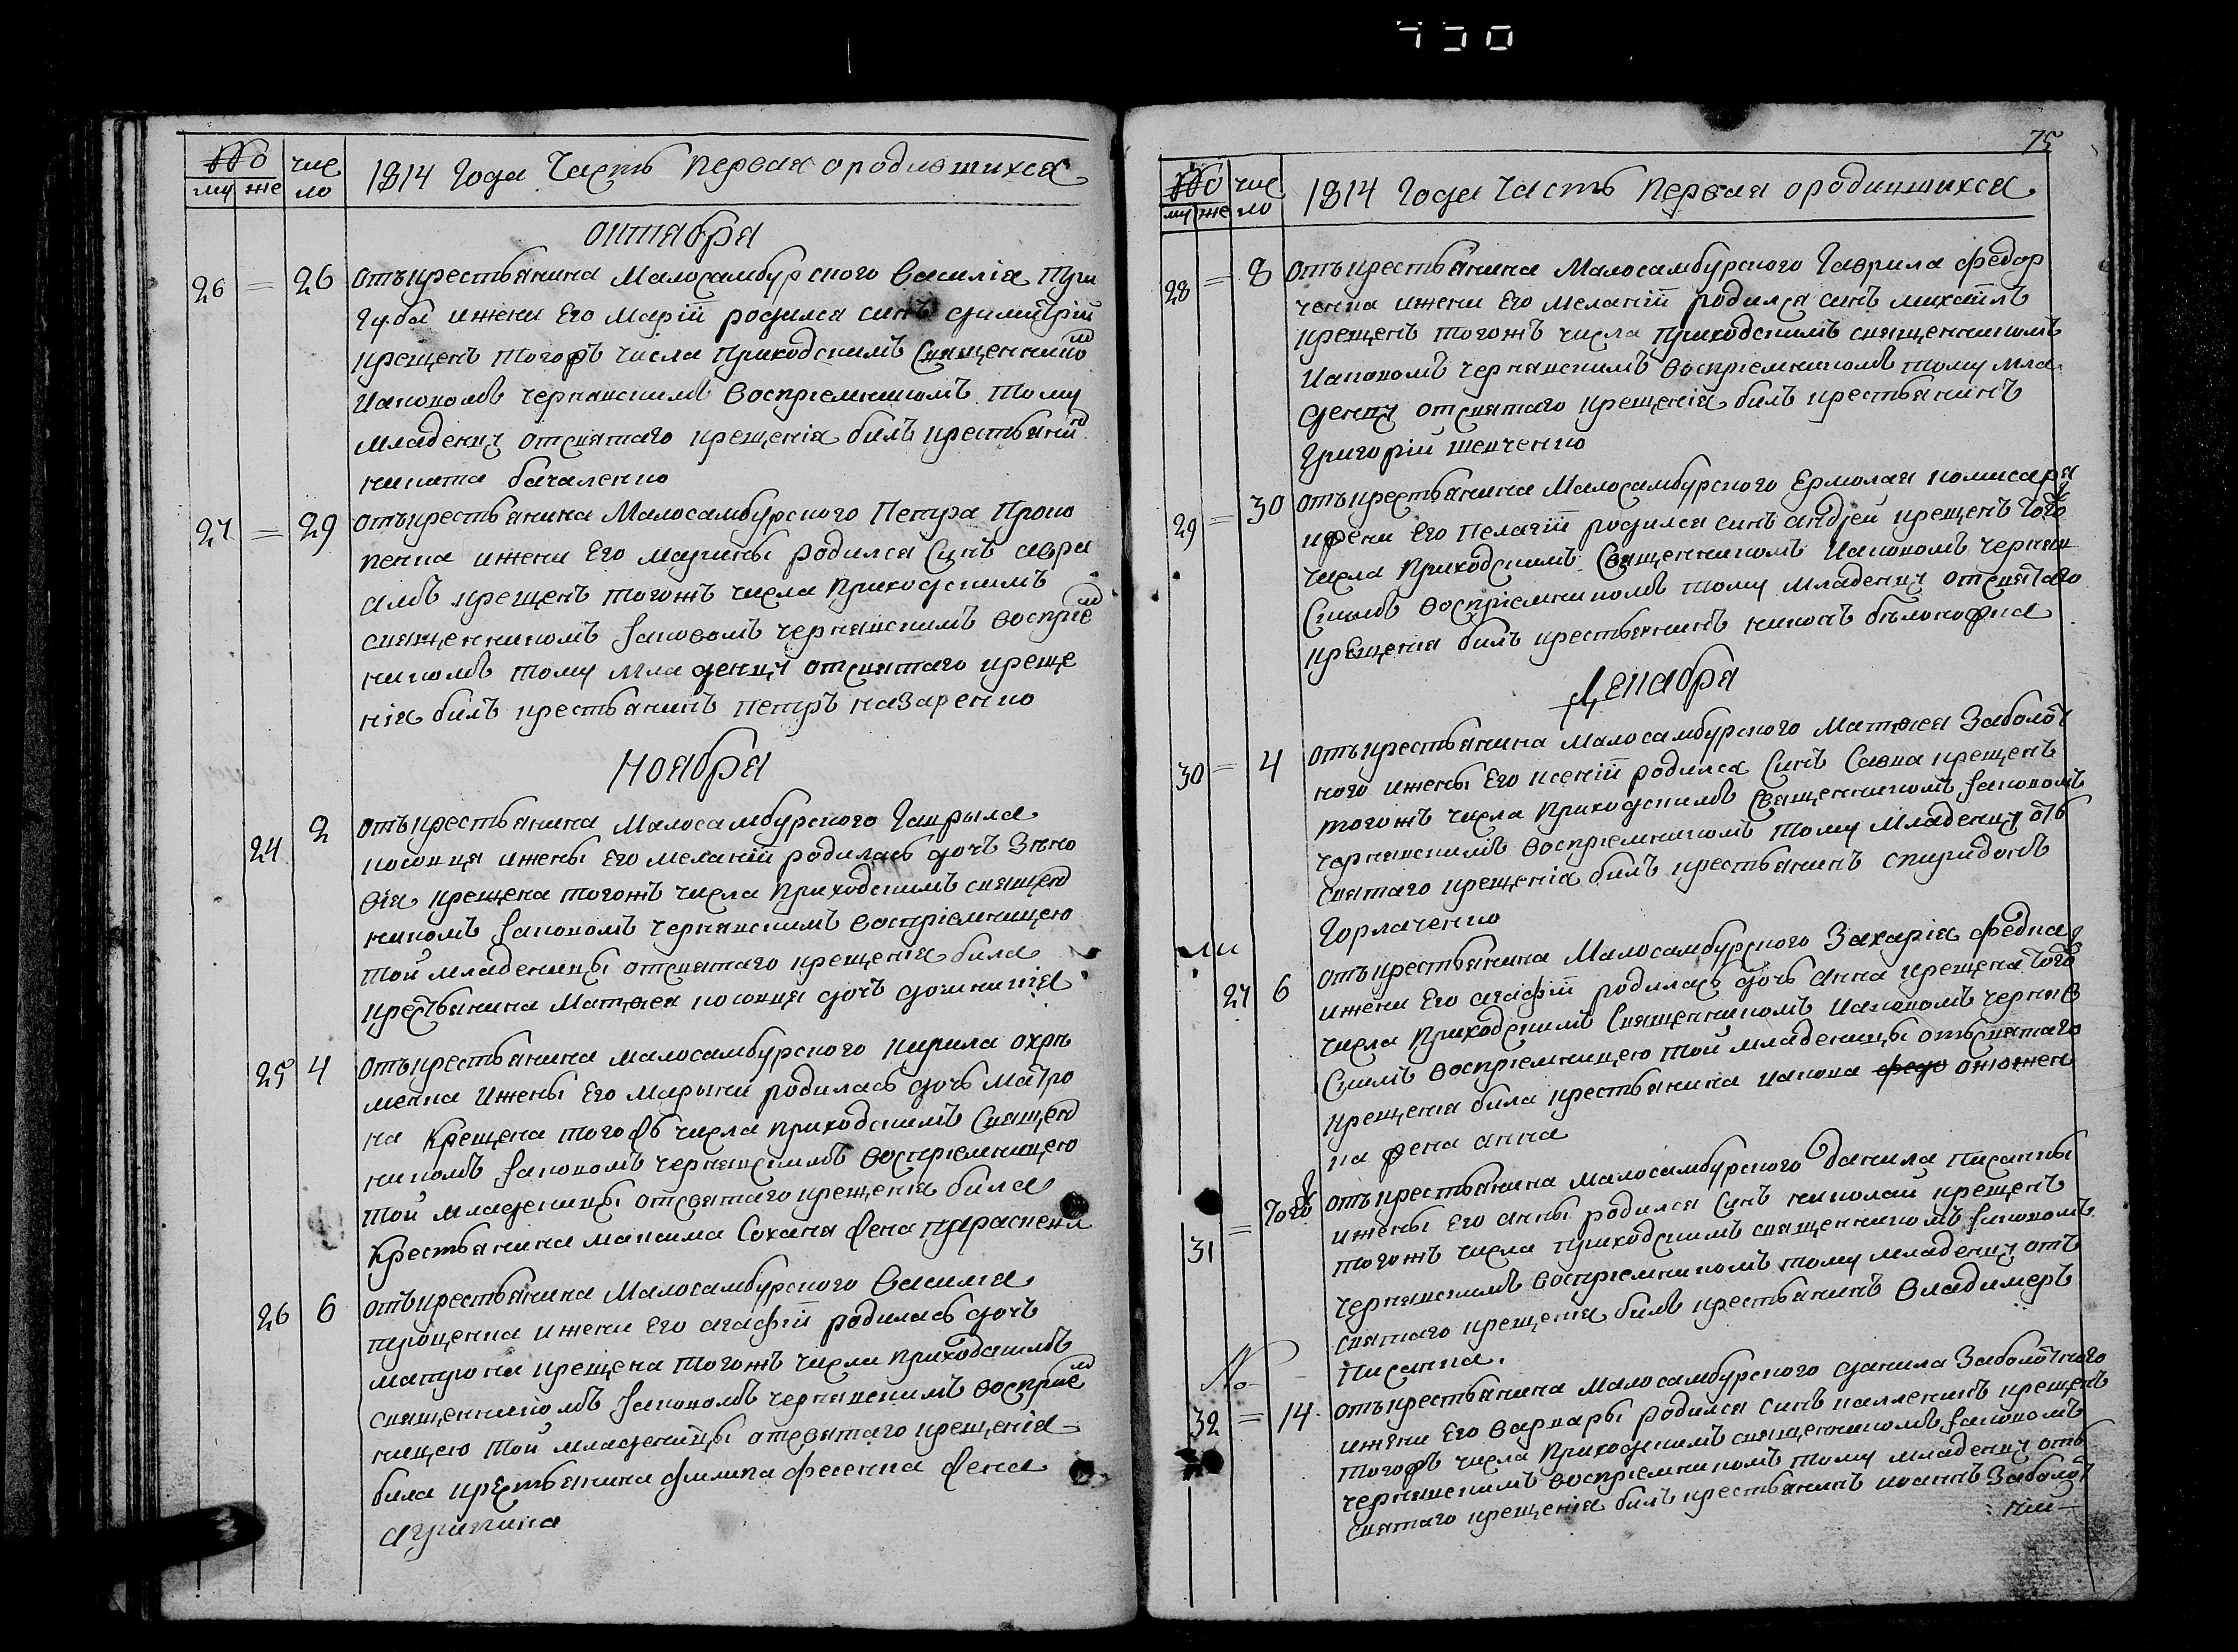 450
№ чис
му же ло
1814 Года Часть первая ородившихся
октября
26 = 26 отъкрестьянина Малосамбурского василія
губы ижени Его Маріи родился синъ димитрій
крещенъ тогожъ числа приходскимъ священником
Иаковомъ чернявскимъ воспріемникомъ тому
младенцу отсвятаго крещенія билъ крестьянин
никита бачаленко
27 = 29 отъкрестьянина Малосамбурского Петра Проко
пенка ижени Его марины родился синъ авра
амъ крещенъ тогожъ числа приходскимъ
священникомъ Іаковомъ чернявскимъ воспріем
никомъ тому младенцу отсвятаго креще
нія билъ крестьянинъ петръ назаренко
ноября
24 2 отъкрестьянина Малосамбурского Гаврыла
косовця ижены Его меланіи родилась дочъ Зѣно
вія крещена тогожъ числа приходскимъ священ
никомъ Іаковомъ чернявскимъ воспріемницею
той младеницы отсвятаго крещенія била
крестьянина Матвея косовця дочъ домникія
25 4 отъкрестьянина малосамбурского кирила охрѣ
менка ижены Его Марыни родилась дочъ Матро
на крещена тогожъ числа приходскимъ священ
никомъ Іаковомъ чернявскимъ воспріемницею
той младеницы отсвятаго крещенія била
крестьянина максима Сохана жена параскевія
26 6 отъкрестьянина Малосамбурского василія
ижени Его агафіи родилась дочъ
матрона крещена тогожъ числа приходскимъ
священникомъ Іаковомъ чернявскимъ воспріем
ницею той младеницы отсвятаго крещенія
била крестьянина филипа фесенка жена
агрипина
75
№ чис
му же ло
1814 Года Часть Первая ородившихся
28 = 8 отъкрестьянина Малосамбурского Гаврила федор
ченка ижени Его меланіи родился синъ михаилъ
крещенъ тогожъ числа приходскимъ священникомъ
Иаковомъ чернявскимъ воспріемникомъ тому мла
денцу отсвятаго крещенія билъ крестьянинъ
Григорій шевченко
29 = 30 отъкрестьянина Малосамбурского Ермолая комисаря
ижени Его пелагіи родился синъ андрей крещенъ того ж
числа приходскимъ Священникомъ Иаковомъ черняв
скимъ воспріемникомъ тому младенцу отсвятаго
крещенія билъ крестьянинъ никонъ бѣлоножка
Декабря
30 = 4 отъкрестьянина Малосамбурского Матвея Заболот
ного ижены Его ксеніи родился Синъ Савва крещенъ
тогожъ числа приходскимъ Священникомъ Іаковомъ
чернявскимъ воспріемникомъ тому Младенцу отъ
святаго крещенія билъ крестьянинъ спиридонъ
Горлаченко
27 6 отъкрестьянина Малосамбурского Захарія
ижени Его агафіи родилась дочъ анна крещена того ж
числа приходскимъ Священникомъ Иаковомъ черняв
скимъ воспріемницею той младеницы отъсвятаго
крещенія била крестьянина иакова федо
ка жена анна
31 = того ж отъкрестьянина Малосамбурского данила писанки
ижены Его анны родился Синъ николай крещенъ
тогожъ числа приходскимъ священникомъ Іаковомъ
чернявскимъ воспріемникомъ тому младенцу отъ
святаго крещенія билъ крестьянинъ владимеръ
писанка.
32 = 14 отъкрестьянина Малосамбурского данила Заболотного
ижени Его варвары родился синъ каленикъ крещенъ
тогожъ числа приходскимъ священникомъ Іаковомъ
чернявскимъ воспріемникомъ тому младенцу отъ
святаго крещенія билъ крестьянинъ иоаннъ Заболот